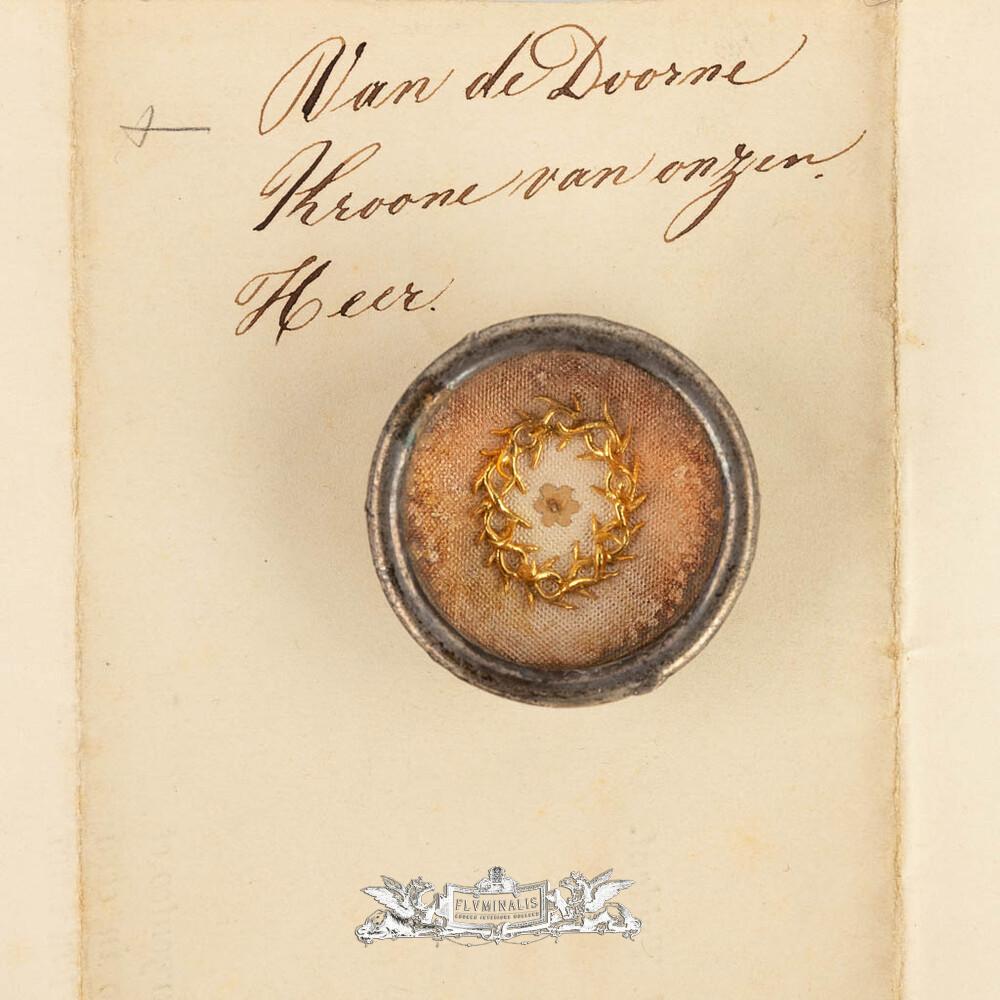 Van de Doorne
Kroone van onzen.
Heer.
FLVMINALIS